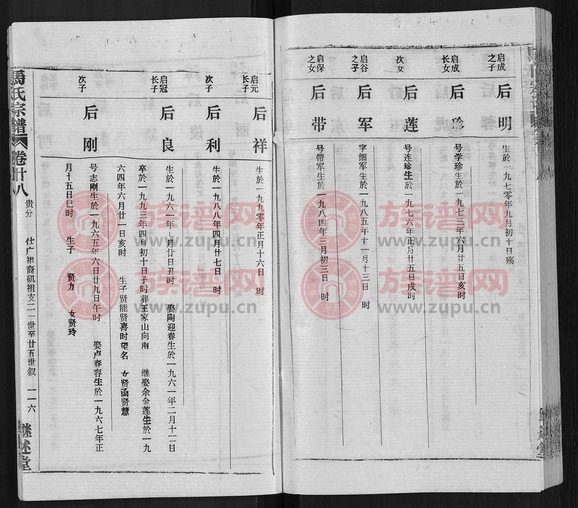 启成之子
后明
生於一九七〇年九月初十日殇
启成长女
后珍
号学珍生於一九七三年六月廿五日亥时
次女
后莲
号连珍生於一九七六年正月廿五日戌时
启谷之子
后军
字细军生於一九八五年十一月十三日 时
启保之女
后带
号带军生於一九八四年三月初三日 时
启元长子
后祥
生於一九九〇年正月十六日 时
次子
后利
生於一九九八年四月廿七日 时
启冠长子
后良
生於一九六一年 月廿日丑时 娶陶迎春生於一九六一年二月十一日
卒於一九九三年四月初十日子时葬王家山向南 继娶余金莲生於一九
六四年六月廿一日亥时 生子贤能贤喜时望名 女贤函贤慧
次子
后刚
号志刚生於一九六五年六日廿九日午时 娶卢春容生於一九六七年正
月十五日巳时 生子 贤力 女贤玲
馬氏宗譜
卷廿八
贵分
仕广祖裔矶祖支二一世至廿五世叙
一一六
继述堂
族谱网
www.zupu.cn
族谱网
www.zupu.cn
族谱网
www.zupu.cn
族谱网
www.zupu.cn